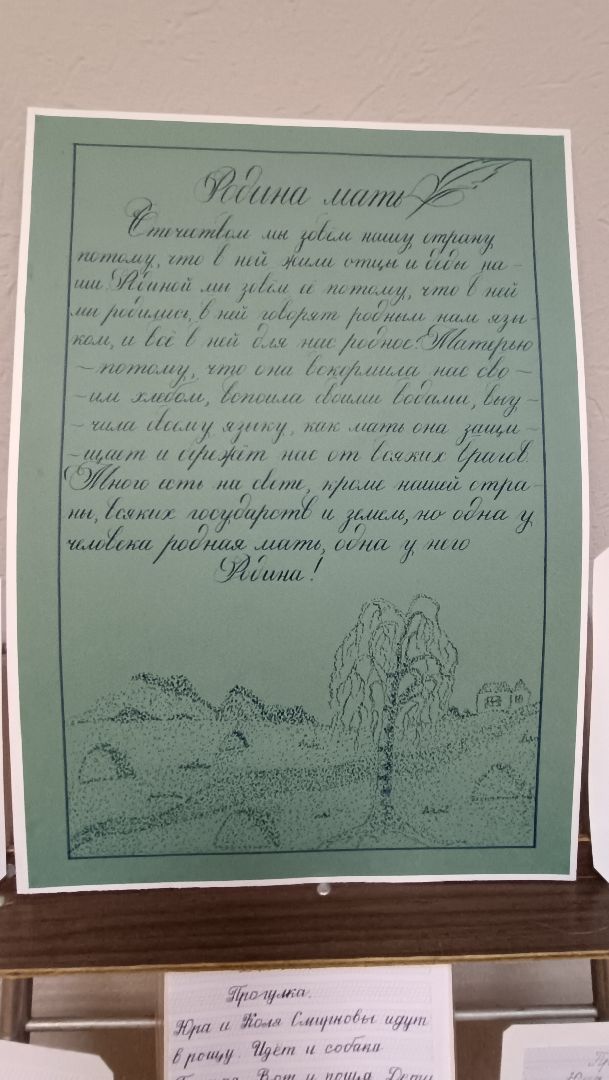 Родина мать
Отечеством мы зовём нашу страну
потому, что в ней жили отцы и деды на-
ши. Родиной мы зовём её потому, что в ней
мы родились, в ней говорят родным нам язы-
ком, и всё в ней для нас родное. Матерью
- потому, что она вскормила нас сво-
-им хлебом, вспоила своими водами, выу-
-чила своему языку, как мать она защи-
-щает и бережёт нас от всяких врагов.
Много есть на свете, кроме нашей стра-
ны, всяких государств и земель, но одна у
человека родная мать, одна у него
Родина!
Прогулка.
Юра и Коля Смирновы идут
в рощу. Идёт и собака
Вот и роща. Дети